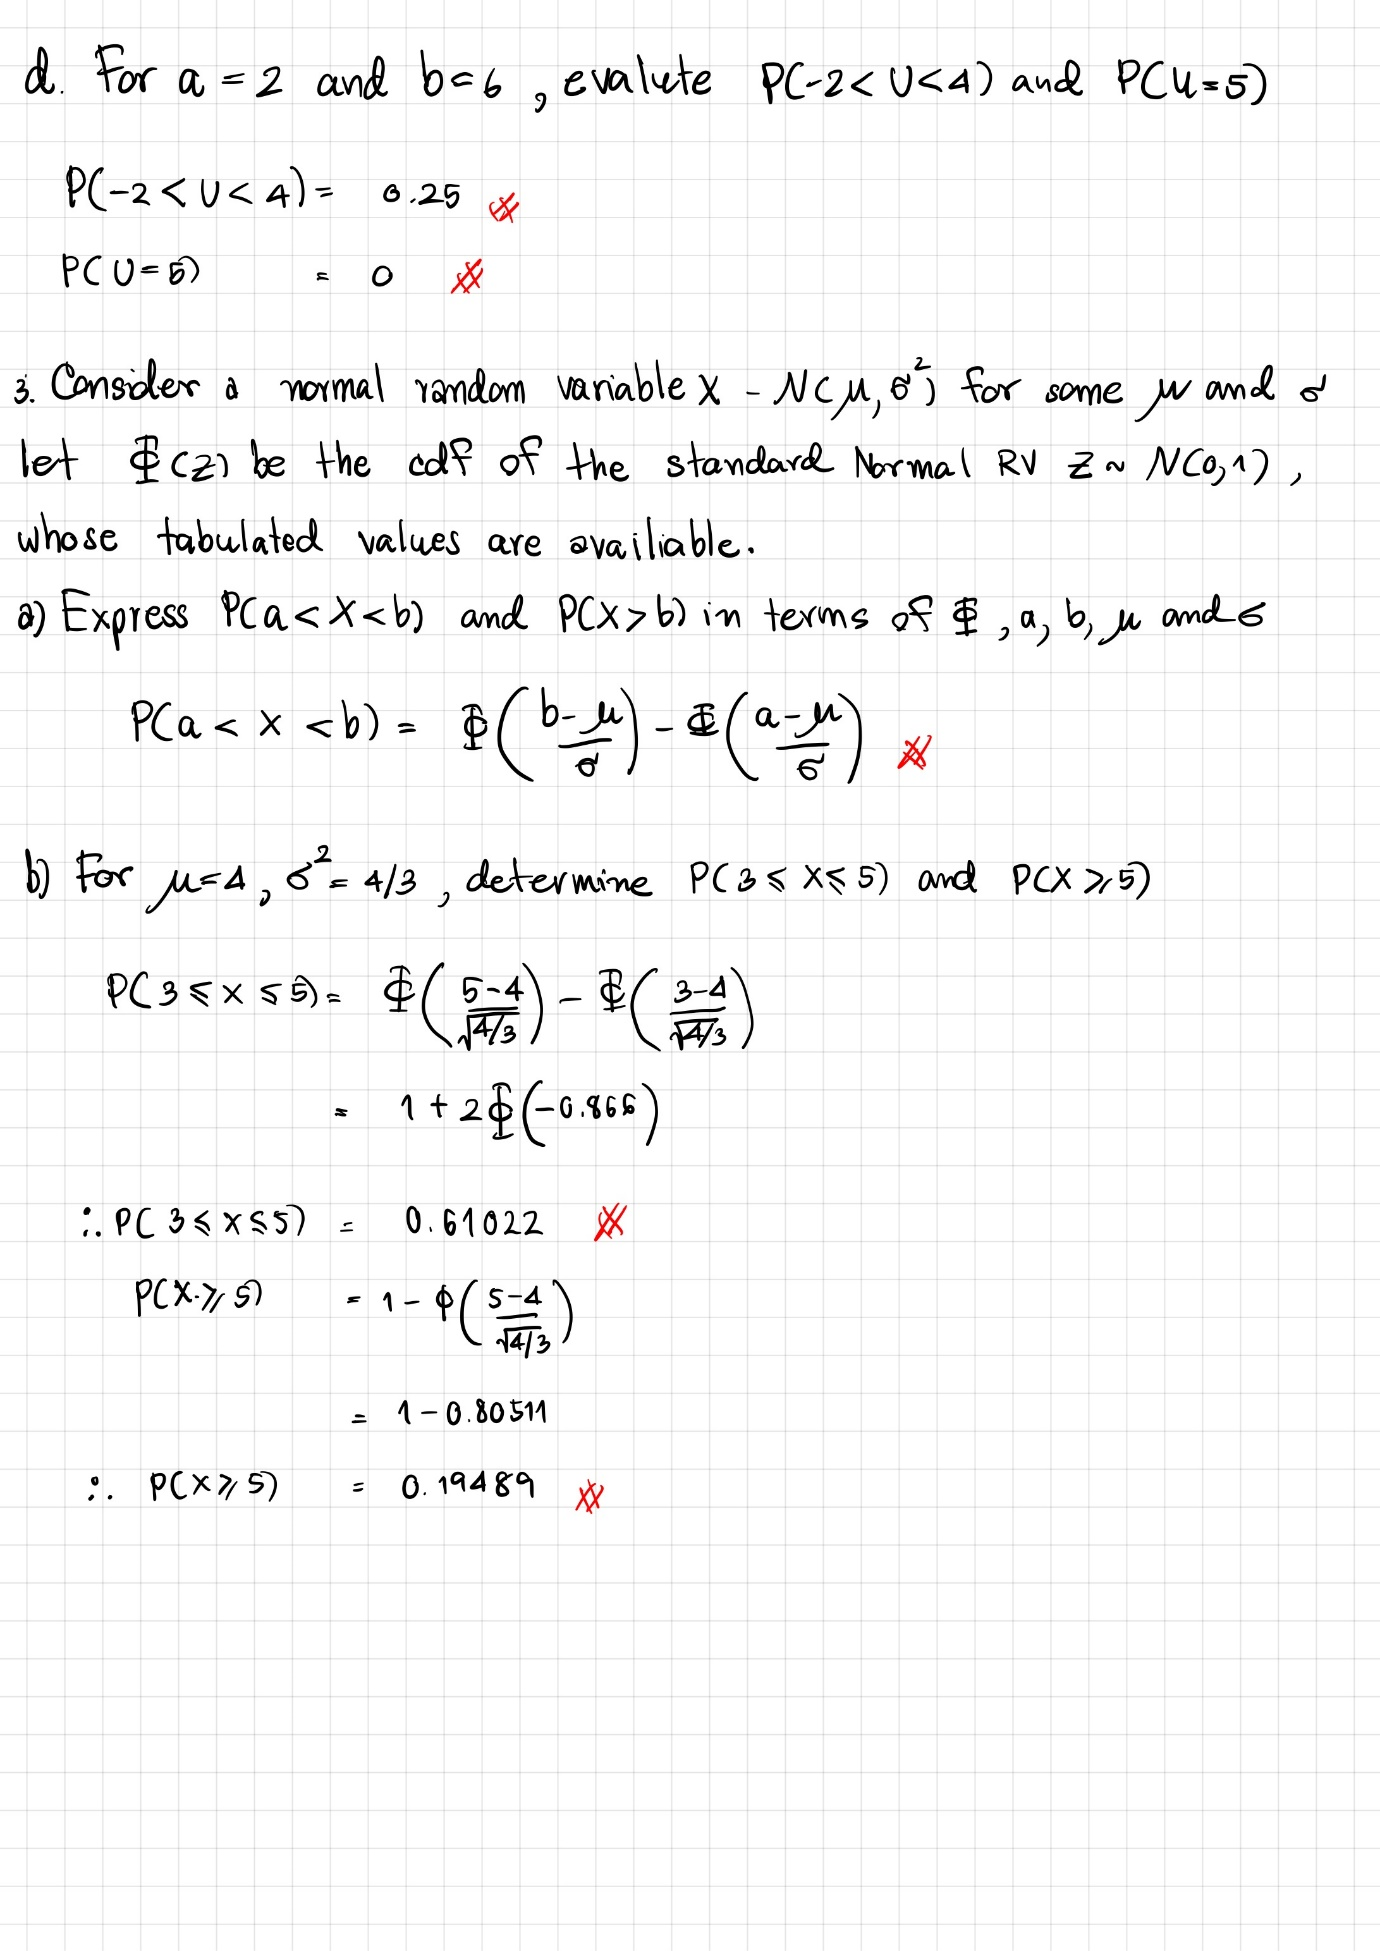 d. For a = 2 and b = 6 , evalute P(-2 < U < 4) and P(U = 5)
P(-2 < U < 4) = 0.25
P(U = 5) = 0
3. Consider a normal random variable X - N(μ, σ²) for some μ and σ
let Φ(z) be the cdf of the standard Normal RV Z ~ N(0,1) ,
whose tabulated values are availiable.
a) Express P(a < X < b) and P(X > b) in terms of Φ , a, b, μ and σ
P(a < X < b) = Φ((b-μ)/σ) - Φ((a-μ)/σ)
b) For μ = 4 , σ² = 4/3 , determine P(3 ≤ X ≤ 5) and P(X ≥ 5)
P(3 ≤ X ≤ 5) = Φ((5-4)/√4/3) - Φ((3-4)/√4/3)
= 1 + 2Φ(-0.866)
∴ P(3 ≤ X ≤ 5) = 0.61022
P(X ≥ 5) = 1 - Φ((5-4)/√4/3)
= 1 - 0.80511
∴ P(X ≥ 5) = 0.19489